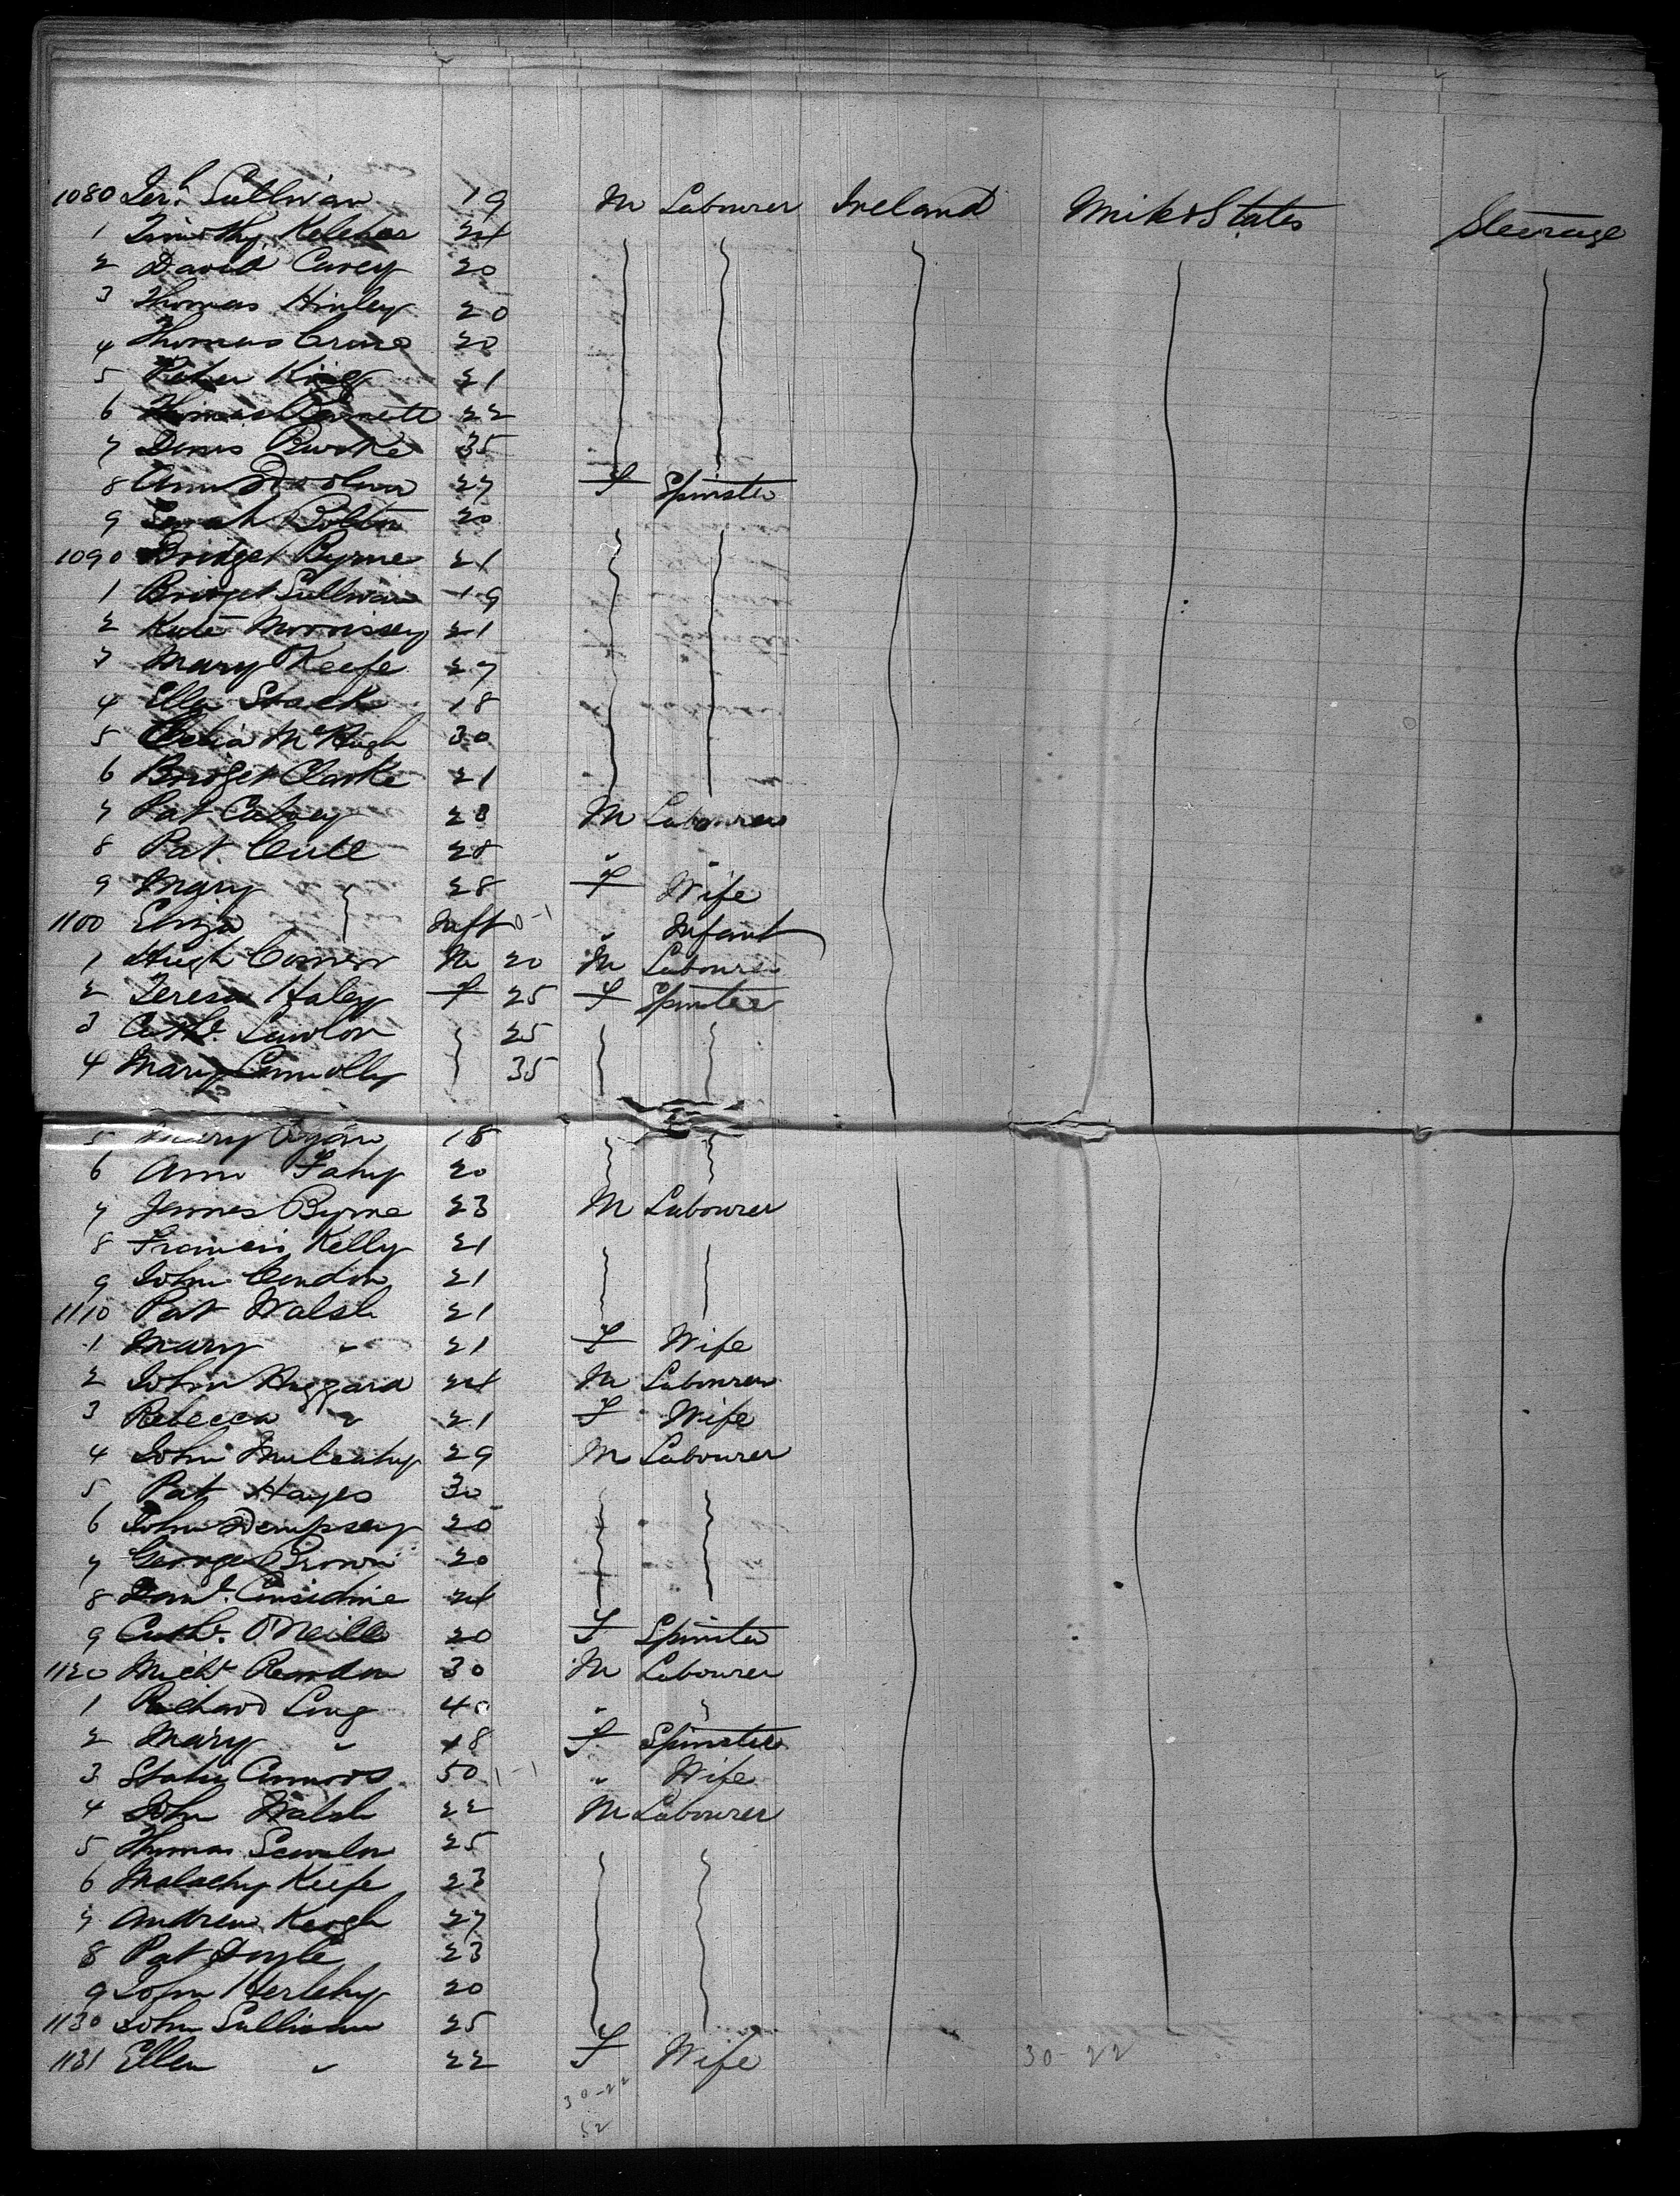 1080 Jerh Sullivan 19 M Labourer Ireland United States Steerage
1 Timothy Keleher 24
2 David Carey 20
3 Thomas Hinley 20
4 Thomas 20
5 Peter King 21
6 Thomas 22
7 Denis Rourke 35
8 Ann 27 F Spinster
9 Sarah Bolton 20
1090 Bridget Byrne 21
1 Bridget Sullivan 19
2 Kate Morrissey 21
3 Mary O'Keefe 27
4 Ellen Stack 18
5 Celia McHugh 30
6 Bridget Clarke 21
7 Pat 20 M Labourer
8 Pat 28 " "
9 Mary 28 F Wife
1100 Eliza Inft 0-1 " Infant
1 Hugh M 20 M Labourer
2 Teresa Haley F 25 F Spinster
3 Cathe. Lawlor 25
4 Mary Connolly 35
5 Mary Ryan 18
6 Ann Fahy 20
7 James Byrne 23 M Labourer
8 Francis Kelly 21
9 John Condon 21
1110 Pat Walsh 21
1 Mary " 21 F Wife
2 John Huggard 24 M Labourer
3 Rebecca " 21 F Wife
4 John Mulcahy 29 M Labourer
5 Pat Hayes 30
6 John Dempsey 20
7 George Brown 20
8 Danl. Considine 24
9 Cathe. O'Neill 20 F Spinster
1120 Michl 30 M Labourer
1 Richard Long 40 "
2 Mary " 18 F Spinster
3 Statia Connors 50 1-1 " Wife
4 John Walsh 22 M Labourer
5 Thomas Scanlon 25
6 Malachy Keefe 23
7 Andrew Keogh 27
8 Pat Doyle 23
9 John Herlihy 20
1130 John Sullivan 25
1131 Ellen " 22 F Wife 30-22
30-22
52